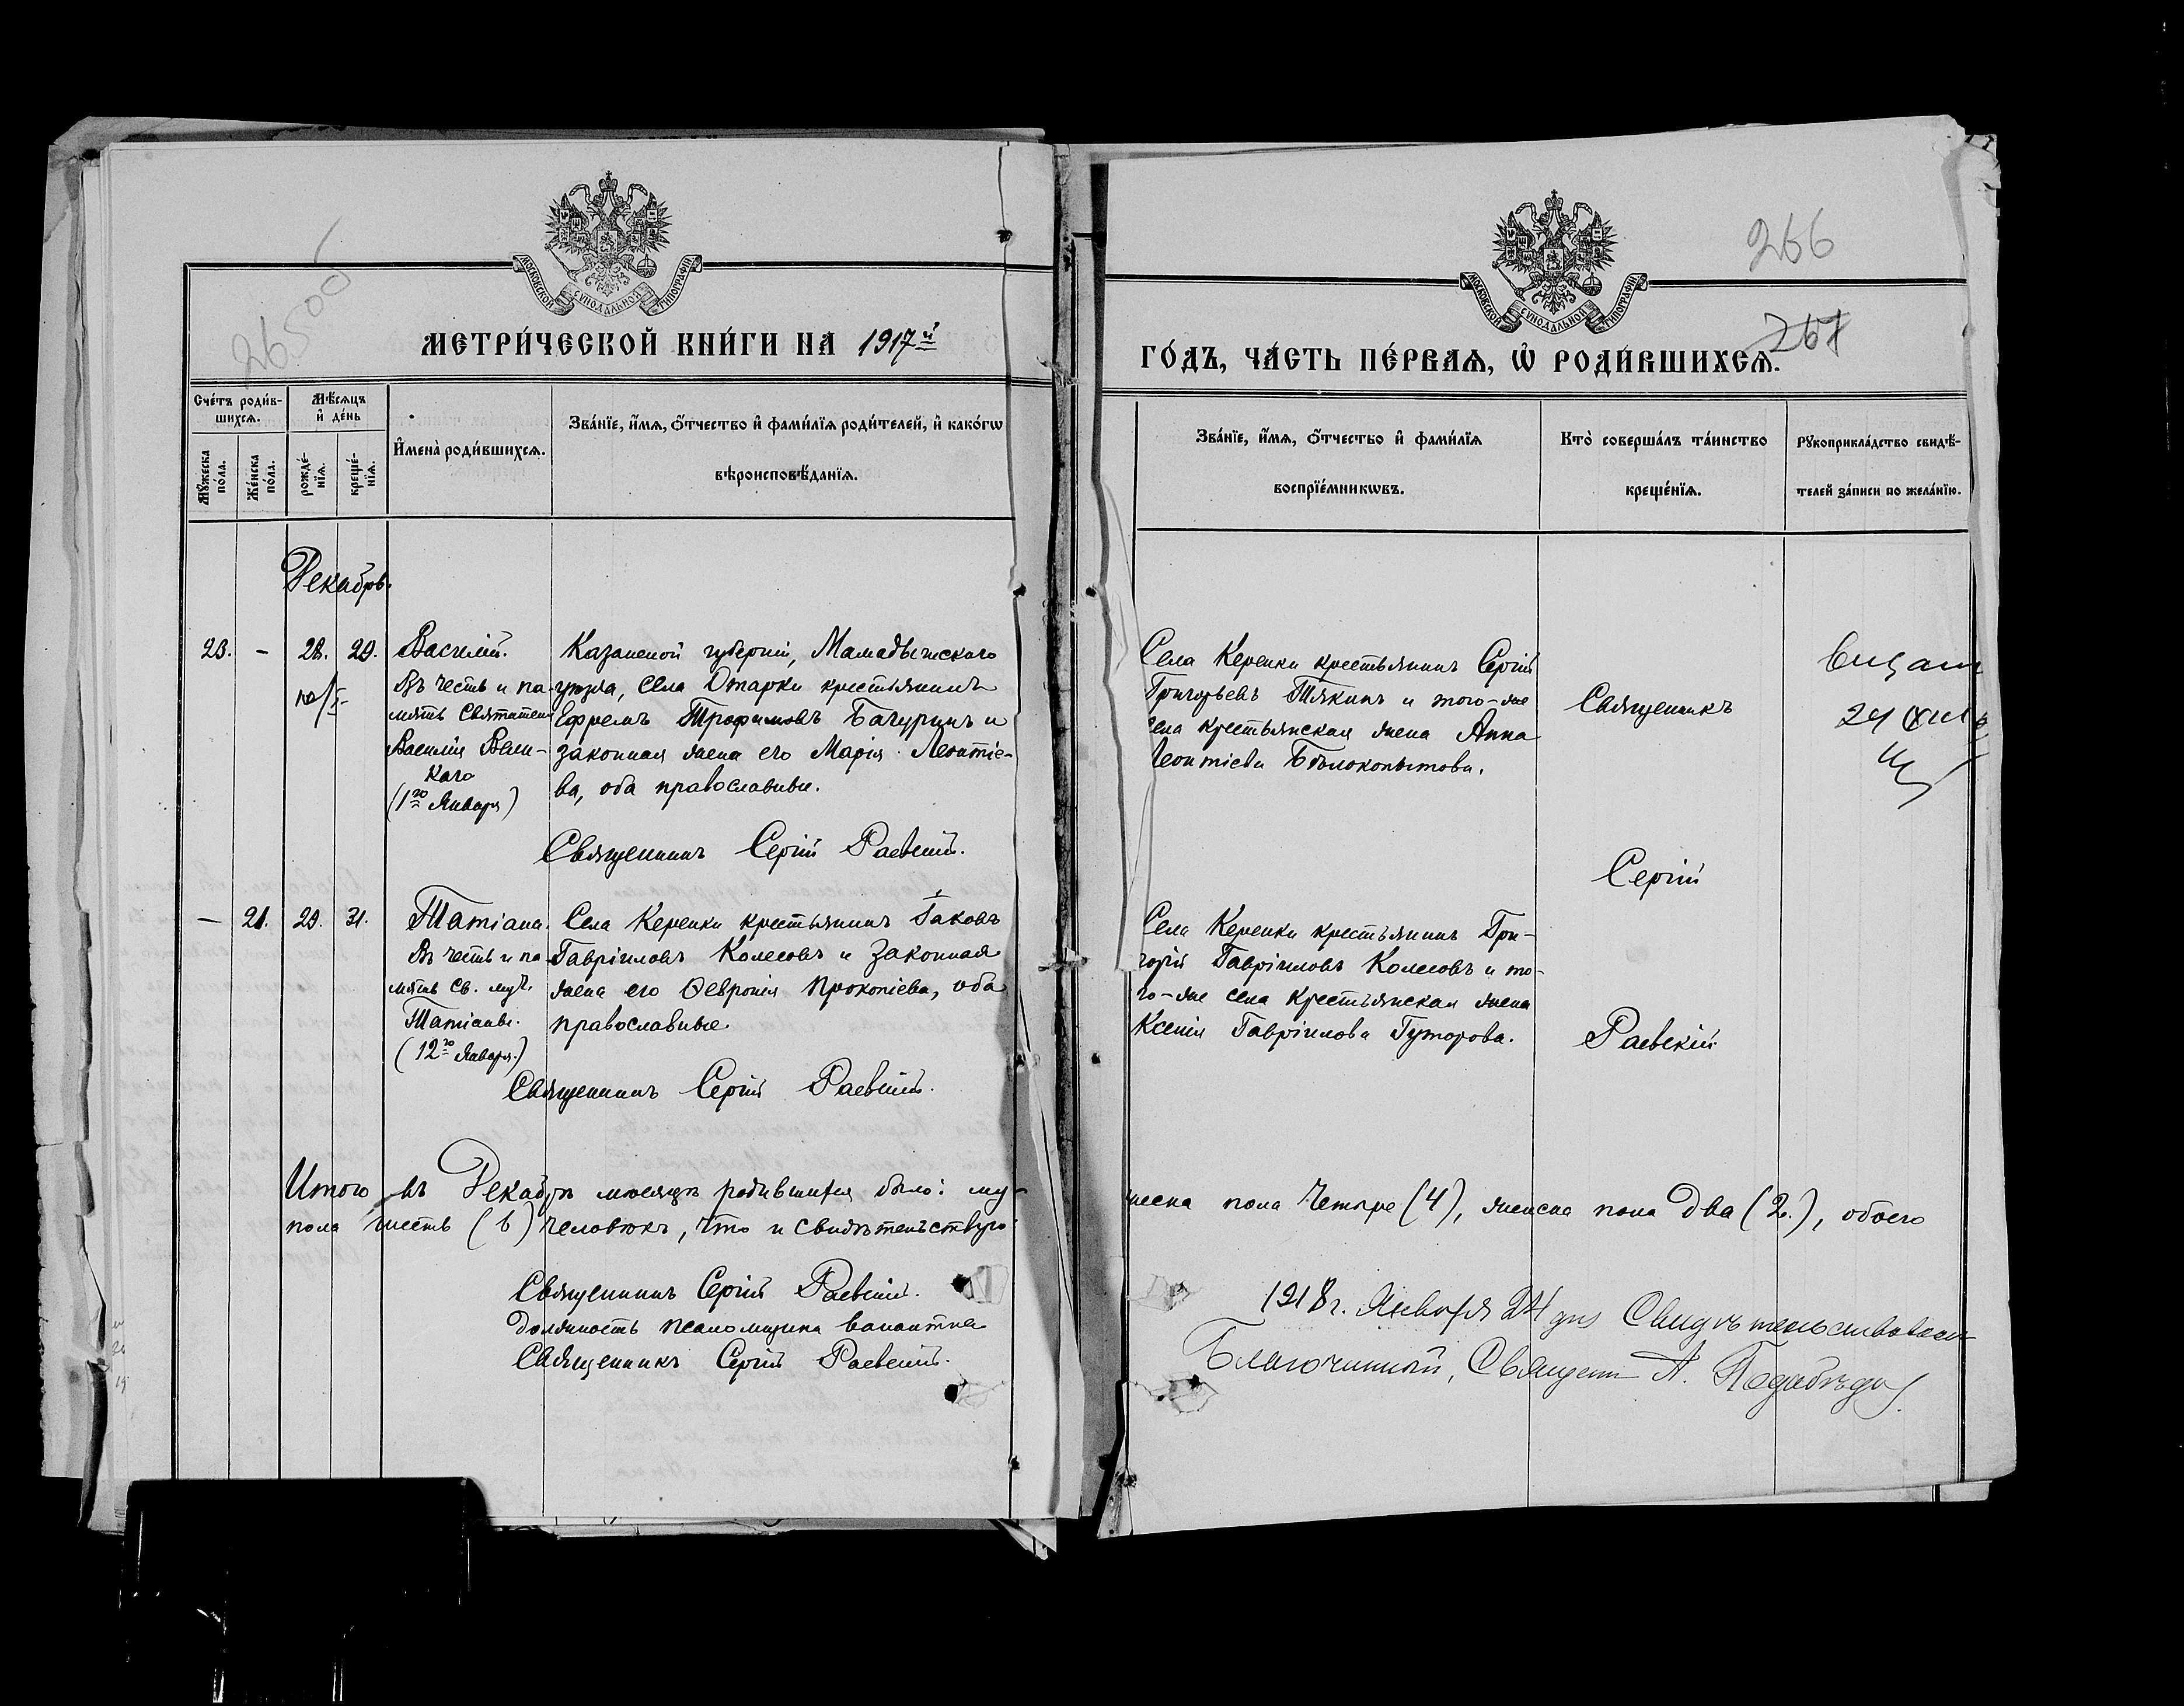 МОСКОВСКОЙ СѴНОДАЛЬНОЙ ТИПОГРАФІИ
МЕТРИ́ЧЕСКОЙ КНИ́ГИ НА 1917й
Сче́тъ роди́в-
шихсѧ.
Мѣ́сѧцъ
и҆ де́нь
Мꙋ́жеска
по́ла.
Же́нска
по́ла.
рожде́-
нїѧ.
креще́-
нїѧ.
И҆мена̀ роди́вшихсѧ.
Зва́нїе, и҆́мѧ, ѻ҆́тчество и҆ фами́лїѧ роди́телей, и҆ како́гѡ
вѣроисповѣ́данїѧ.
Декабрь.
23. - 28. 29. Василій.
Въ честь и па-
мять Святителя
Василія Вели-
каго
(1го Января)
Казанской губерніи, Мамадышскаго
уѣзда, села Отарки крестьянинъ
Ефремъ Трофимовъ Бачуринъ и
законная жена его Марія Леонтіе-
ва, оба православные.
Священникъ Сергій Раевскій.
— 21. 29. 31. Татіана.
Въ честь и па-
мять св. муч.
Татіаны.
(12го Января.)
Села Керенки крестьянинъ Іаковъ
Гавріиловъ Колесовъ и законная
жена его Ѳевронія Прокопіева, оба
православные.
Священникъ Сергій Раевскій.
Итого въ Декабрѣ мѣсяцѣ родившихся было: му-
пола шесть (6) человѣкъ, что и свидѣтельствую:
Священникъ Сергій Раевскій.
Должность псаломщика вакантна
Священникъ Сергій Раевскій.
266
267
МОСКОВСКОЙ СѴНОДАЛЬНОЙ ТИПОГРАФІИ
ГО́ДЪ, ЧА́СТЬ ПЕ́РВАѦ, Ѡ҆ РОДИ́ВШИХСѦ.
Зва́нїе, и҆́мѧ, ѻ҆́тчество и҆ фами́лїѧ
воспрїе́мникѡвъ.
Кто̀ соверша́лъ та́инство
креще́нїѧ.
Рꙋкоприкла́дство свидѣ́-
телей за́писи по жела́нїю.
Села Керенки крестьянинъ Сергій
Григорьевъ Тякинъ и того-же
села крестьянская жена Анна
Леонтіева Бѣлокопытова.
Священникъ
Сергій
Раевскій
24
Села Керенки крестьянинъ Гри-
горій Гавріиловъ Колесовъ и то-
го-же села крестьянская жена
Ксенія Гавріилова Гуторова.
жеска пола четыре (4), женска пола два (2.), обоего
1918 г. Января 24 дня Свидѣтельствовалъ
Благочинный, Священ А.